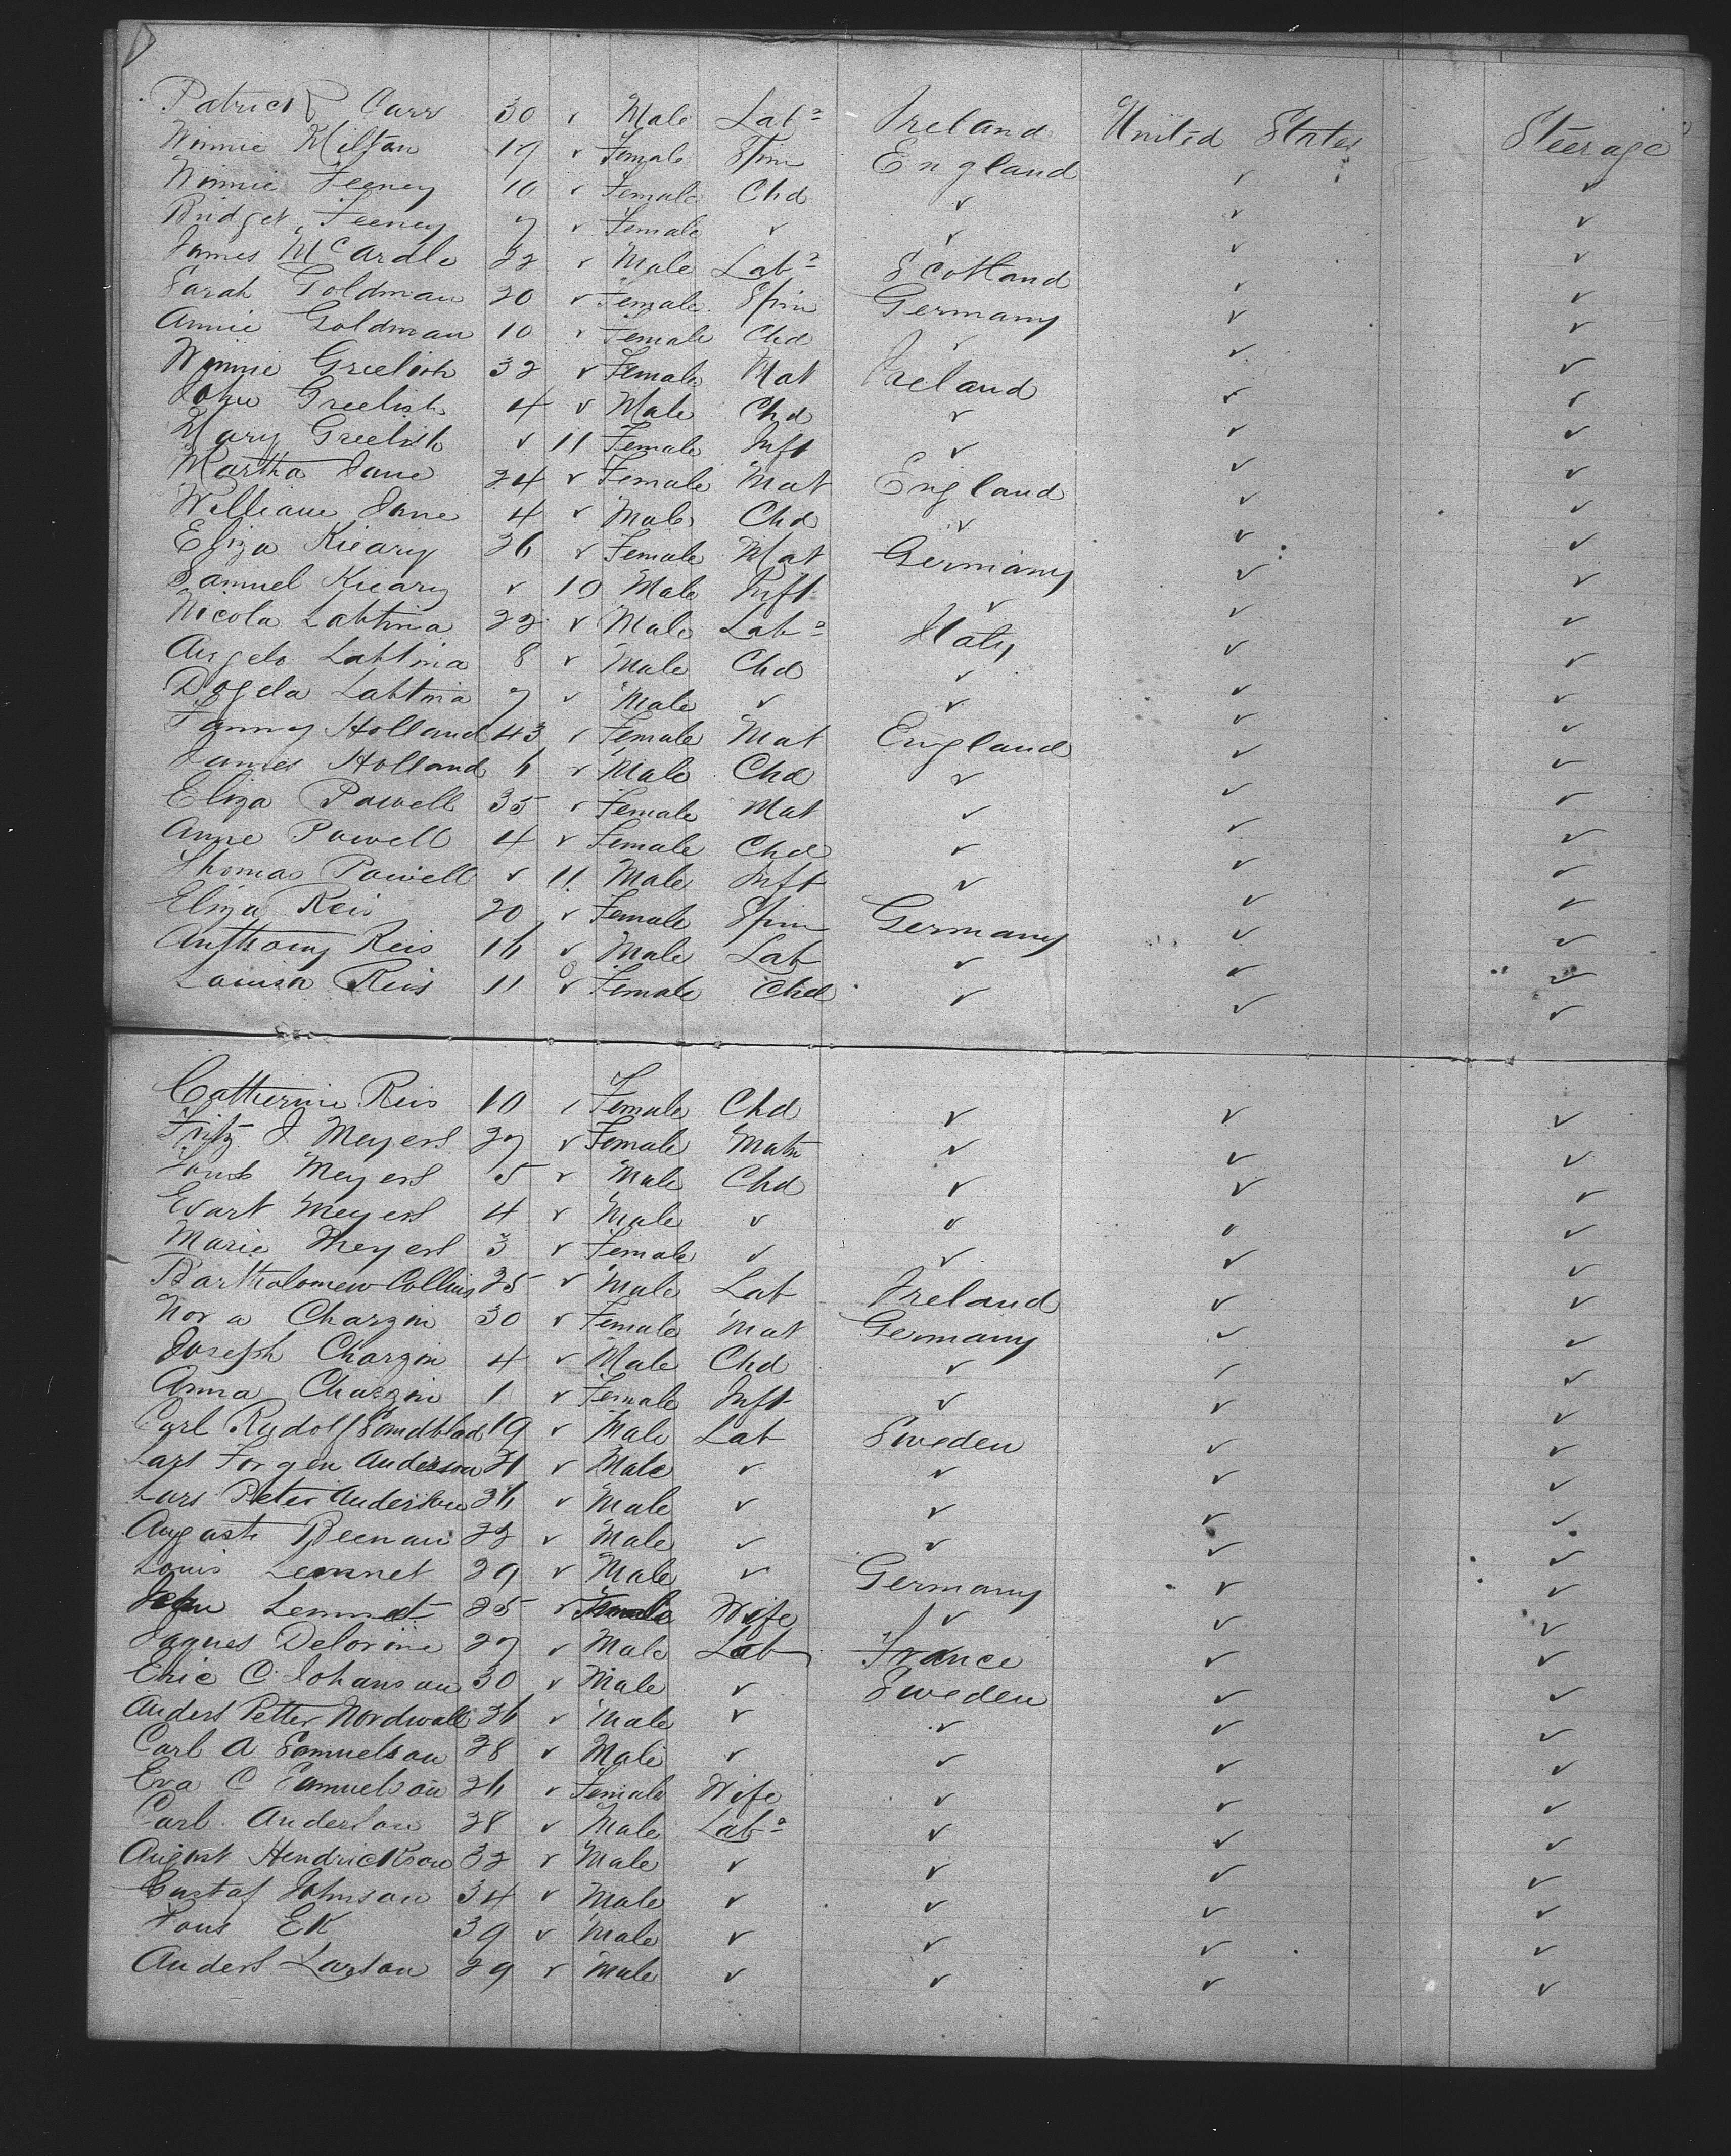 Patrick Carr 30 ✓ Male Lab^r Ireland United States Steerage
Winnie Milton 19 ✓ Female Spin England ✓ ✓
Winnie Feeney 10 ✓ Female Chd ✓ ✓ ✓
Bridget Feeney 7 ✓ Female ✓ ✓ ✓ ✓
James McArdle 22 ✓ Male Lab^r Scotland ✓ ✓
Sarah Goldman 20 ✓ Female Spin Germany ✓ ✓
Annie Goldman 10 ✓ Female Chd ✓ ✓ ✓
Winnie Greelish 32 ✓ Female Mat Ireland ✓ ✓
John Greelish 4 ✓ Male Chd ✓ ✓ ✓
Mary Greelish ✓ 11 Female Inft ✓ ✓ ✓
Martha Jane 24 ✓ Female Mat England ✓ ✓
William Jane 4 ✓ Male Chd ✓ ✓ ✓
Eliza Kieary 26 ✓ Female Mat Germany ✓ ✓
Samuel Kieary ✓ 10 Male Inft ✓ ✓ ✓
Nicola Labtina 22 ✓ Male Lab^r Italy ✓ ✓
Angelo Labtina 8 ✓ Male Chd ✓ ✓ ✓
Dogela Labtina 7 ✓ Male ✓ ✓ ✓ ✓
Fanny Holland 43 ✓ Female Mat England ✓ ✓
James Holland 6 ✓ Male Chd ✓ ✓ ✓
Eliza Powell 35 ✓ Female Mat ✓ ✓ ✓
Anne Powell 4 ✓ Female Chd ✓ ✓ ✓
Thomas Powell ✓ 11 Male Inft ✓ ✓ ✓
Eliza Reis 20 ✓ Female Spin Germany ✓ ✓
Anthony Reis 16 ✓ Male Lab ✓ ✓ ✓
Louisa Reis 11 ✓ Female Chd ✓ ✓ ✓
Catherine Reis 10 ✓ Female Chd ✓ ✓ ✓
Fritz J Meyers 27 ✓ Female Matr ✓ ✓ ✓
Meyers 5 ✓ Male Chd ✓ ✓ ✓
Evart Meyers 4 ✓ Male ✓ ✓ ✓ ✓
Marie Meyers 3 ✓ Female ✓ ✓ ✓ ✓
Bartholomew Collins 25 ✓ Male Lab Ireland ✓ ✓
Nora Chargin 30 ✓ Female Mat Germany ✓ ✓
Joseph Chargin 4 ✓ Male Chd ✓ ✓ ✓
Anna Chargin 1 ✓ Female Inft ✓ ✓ ✓
Carl Rudolf Sandblad 19 ✓ Male Lab Sweden ✓ ✓
Lars Jorgen Anderson 21 ✓ Male ✓ ✓ ✓ ✓
Lars Peter Anderson 26 ✓ Male ✓ ✓ ✓ ✓
August Beenau 22 ✓ Male ✓ ✓ ✓ ✓
Louis Lemnet 29 ✓ Male ✓ Germany ✓ ✓
Lemnet 25 ✓ Female Wife ✓ ✓ ✓
Jaques Delorme 27 ✓ Male Lab France ✓ ✓
Eric C Johanson 30 ✓ Male ✓ Sweden ✓ ✓
Anders Petter Nordwall 26 ✓ Male ✓ ✓ ✓ ✓
Carl A Samuelson 28 ✓ Male ✓ ✓ ✓ ✓
Eva C Samuelson 26 ✓ Female Wife ✓ ✓ ✓
Carl Anderson 28 ✓ Male Lab^r ✓ ✓ ✓
August Hendrickson 32 ✓ Male ✓ ✓ ✓ ✓
Gustaf Johnson 34 ✓ Male ✓ ✓ ✓ ✓
Pons Ek 39 ✓ Male ✓ ✓ ✓ ✓
Anders Larson 29 ✓ Male ✓ ✓ ✓ ✓